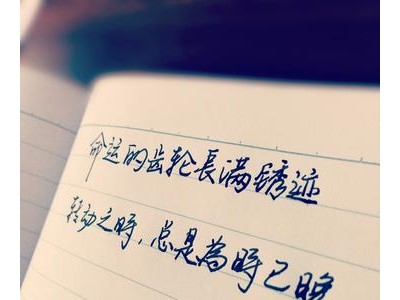 命运的齿轮長满锈迹
转动之時,总是為時已晚